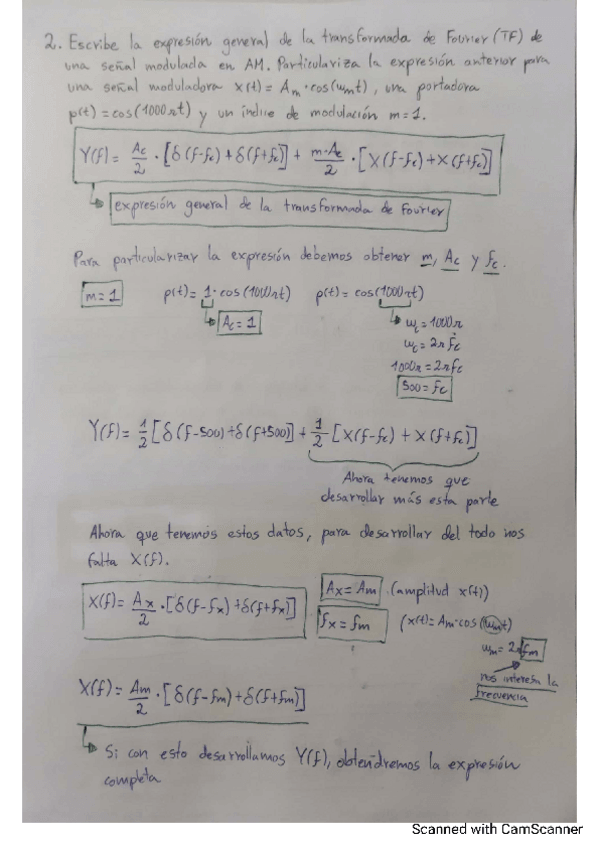 2. Escribe la expresión general de la transformada de Fourier (TF) de
una señal modulada en AM. Particulariza la expresión anterior para
una señal moduladora x(t) = Am·cos(ωmt), una portadora
p(t) = cos(1000πt) y un índice de modulación m=1.
Y(f) = Ac/2 · [δ(f-fc) + δ(f+fc)] + m·Ac/2 · [X(f-fc) + X(f+fc)]
expresión general de la transformada de Fourier
Para particularizar la expresión debemos obtener m, Ac y fc.
m=1 p(t) = 1·cos(1000πt) p(t) = cos(1000πt)
Ac=1 ωc = 1000π
ωc = 2πfc
1000π = 2πfc
500 = fc
Y(f) = 1/2 [δ(f-500) + δ(f+500)] + 1/2 · [X(f-fc) + X(f+fc)]
Ahora tenemos que
desarrollar más esta parte
Ahora que tenemos estos datos, para desarrollar del todo nos
falta X(f).
X(f) = Ax/2 · [δ(f-fx) + δ(f+fx)] Ax = Am (amplitud x(t))
fx = fm (x(t) = Am·cos(ωmt)
ωm = 2πfm
nos interesa la
frecuencia
X(f) = Am/2 · [δ(f-fm) + δ(f+fm)]
Si con esto desarrollamos Y(f), obtendremos la expresión
completa
Scanned with CamScanner